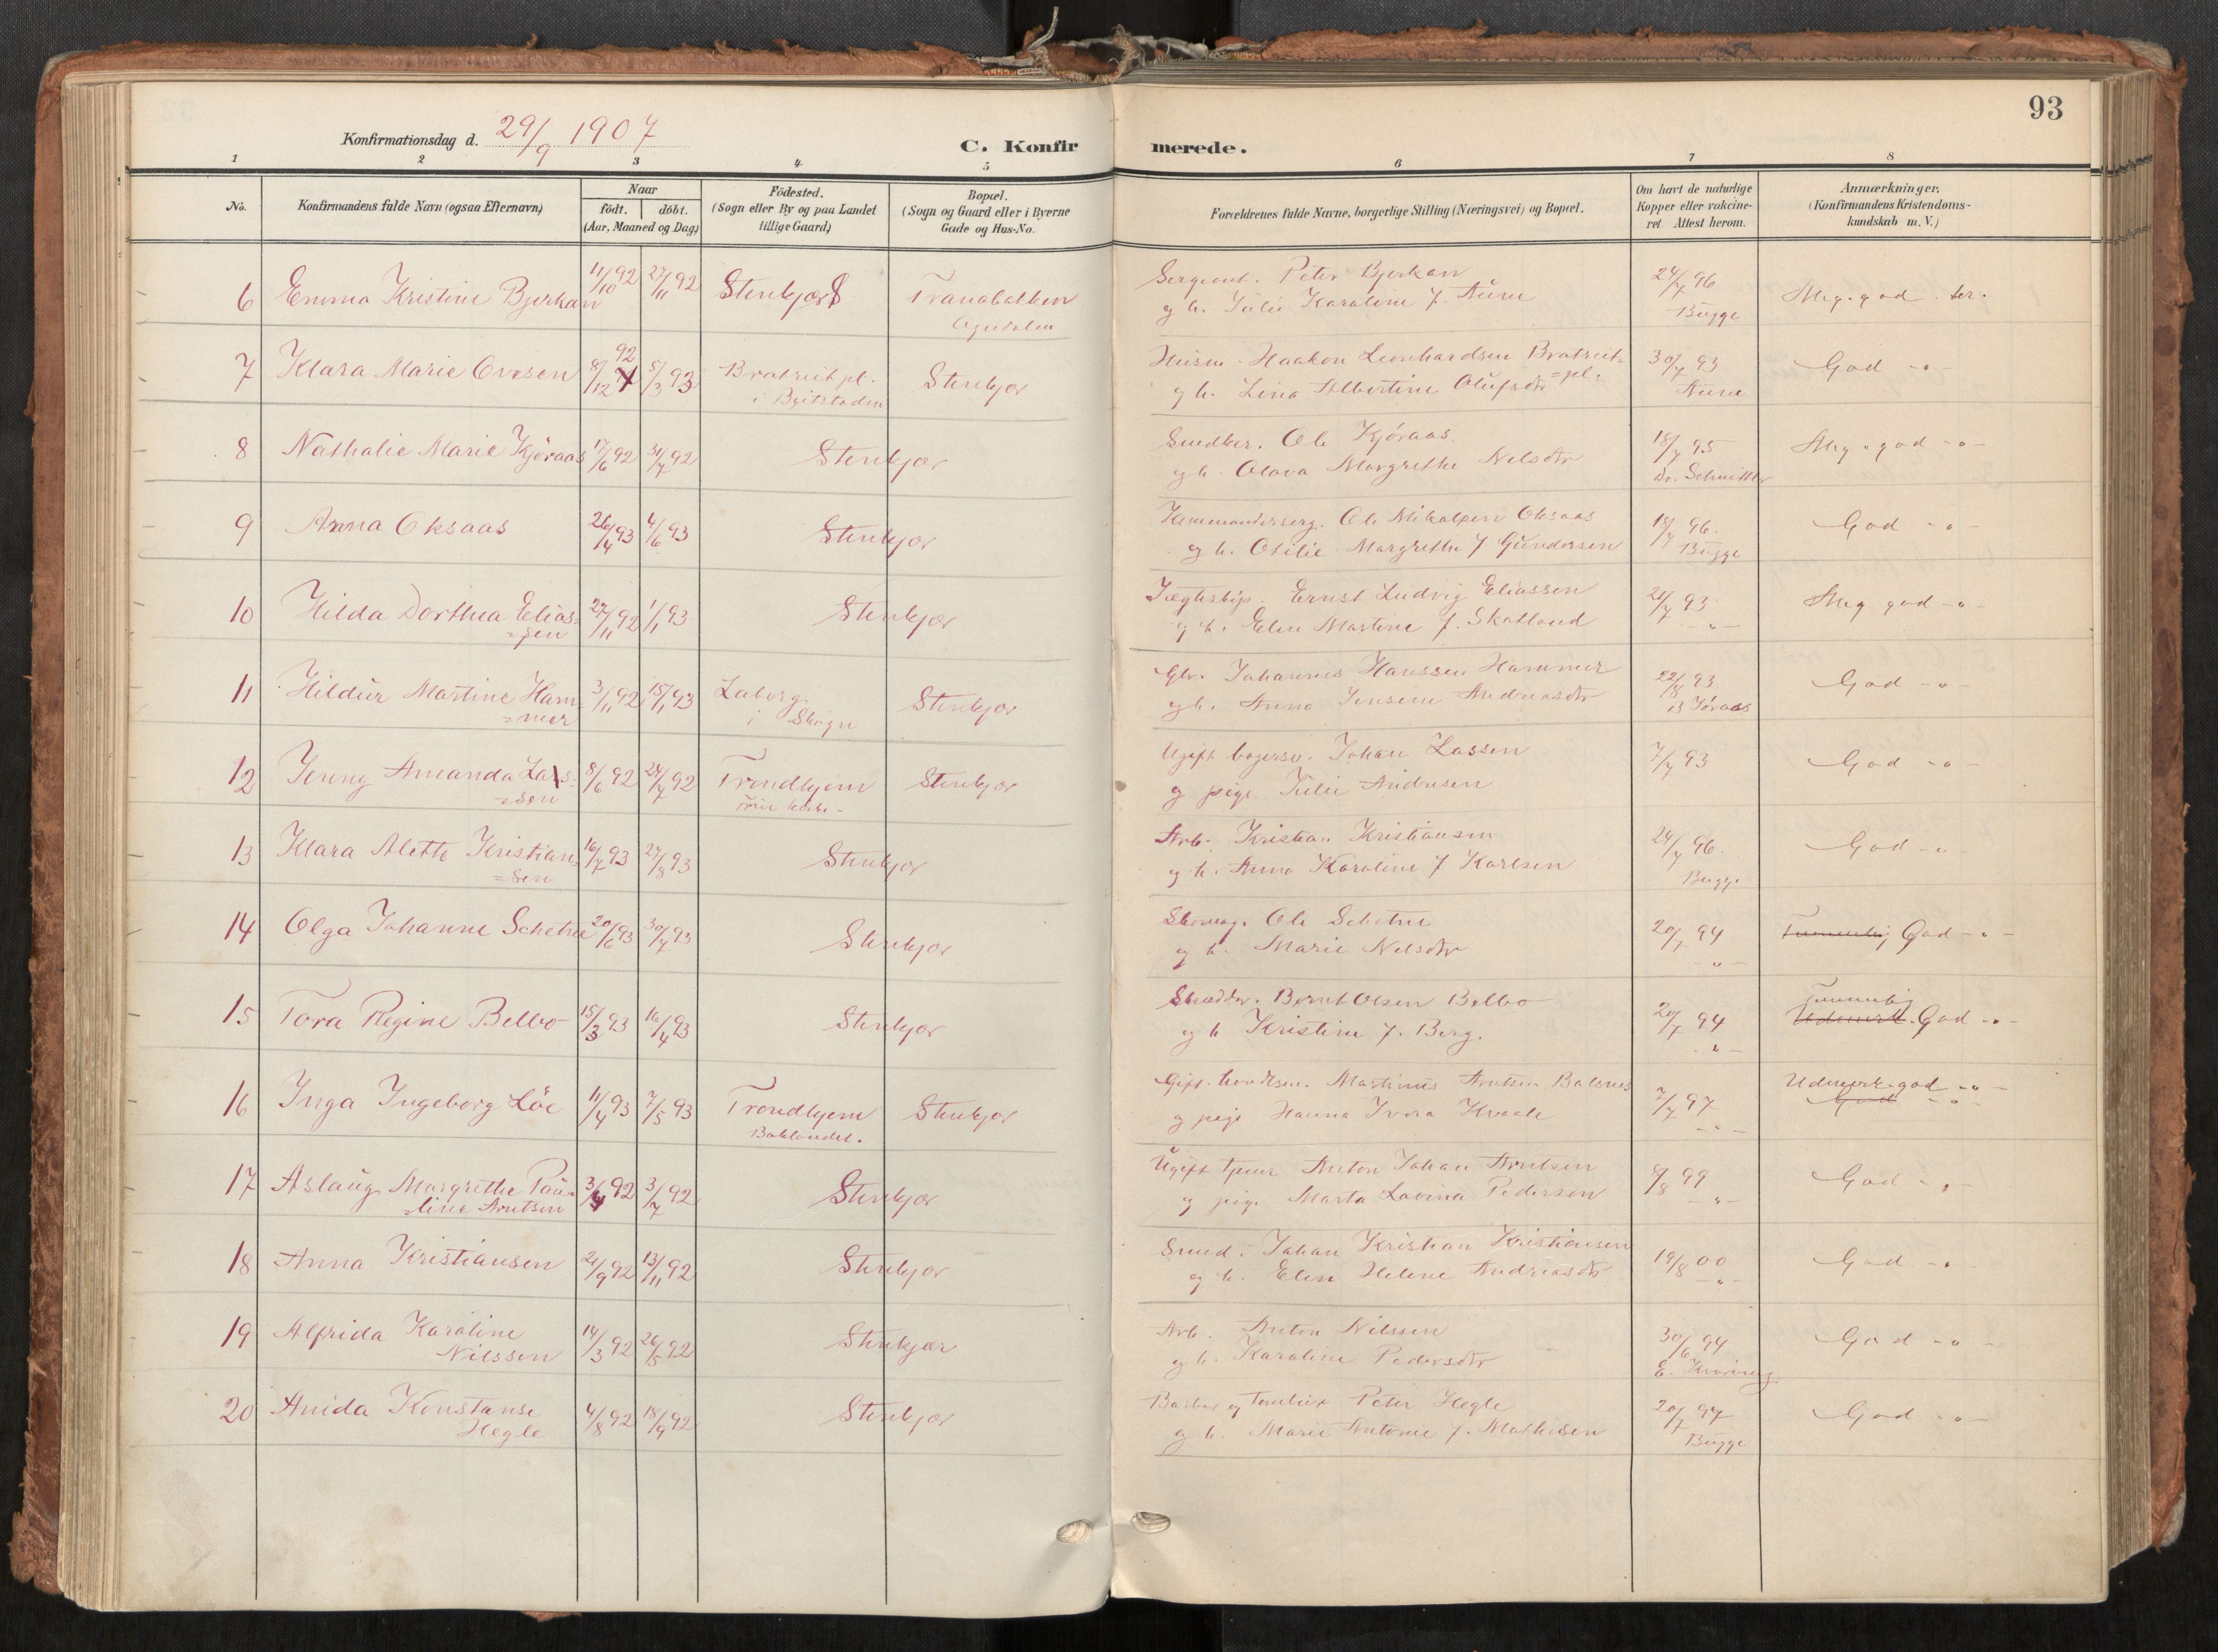 93
Konfirmationsdag d. 29/9 1907
C. Konfirmerede.
1 2 3 4 5 6 7 8
No.
Konfirmandens fulde Navn (ogsaa Efternavn)
Naar
födt. | döbt.
(Aar, Maaned og Dag)
Födested.
(Sogn eller By og paa Landet
tillige Gaard)
Bopæl.
(Sogn og Gaard eller i Byerne
Gade og Hus-No.
Forældrenes fulde Navne, borgerlige Stilling (Næringsvei) og Bopæl.
Om havt de naturlige
Kopper eller vakcine-
ret. Attest herom.
Anmærkninger.
(Konfirmandens Kristendoms-
kundskab m. V.)
6 Emma Kristine Bjerkan 11/10 92 27/11 92 Stenkjær Tranabakken Sergeant. Peter Bjerkan 24/7 96 Meg. god
Ogndalen g h. Julie Karoline f. Aune Bugge
7 Klara Marie Ovesen 8/12 92 5/3 93 Bratreit pl. Stenkjær Husm. Haakon Leonhardsen Bratreit 30/7 93 God -"-
i Beitstaden =pl.
g h. Lina Albertine Olufsdtr Aune
8 Nathalie Marie Kjøraas 17/6 92 31/7 92 Stenkjær Snedker. Ole Kjøraas 18/7 95 Meg. god -"-
g h. Olava Margrethe Nelsdtr Dr. Schnitler
9 Anna Oksaas 26/4 93 4/6 93 Stenkjær Kommandersérg. Ole Mikalsen Oksaas 18/7 96. God -"-
g h. Otilie Margrethe f. Gundersen Bugge
10 Hilda Dorthea Elias= 27/11 92 1/1 93 Stenkjær Jægteskip. Ernst Ludvig Eliassen 21/7 93 Meg god -"-
=sen g h. Elen Martine f. Skatland -"-
11 Hildur Martine Ham= 3/11 92 15/1 93 Laberg Stenkjær Gbr. Johannes Hanssen Hammer 22/8 93 God -"-
=mer i Skogn g h. Anna Jensine Andreasdtr
12 Jenny Amanda Las= 8/6 92 24/7 92 Trondhjem Stenkjær Ugift bagersv. Johan Lassen 7/7 93 God -"-
=sen g pige Julie Andresen
13 Klara Alette Kristian= 16/7 93 27/8 93 Stenkjær Arb. Kristian Kristiansen 24/7 96. God -"-
=sen g h. Anna Karoline f Karlsen Bugge
14 Olga Johanne Schetne 20/6 93 30/7 93 Stenkjær Skomag. Ole Schetne 20/7 94 Temmelig God -"-
g h. Marie Nelsdtr -"-
15 Tora Regine Belbo 15/3 93 16/4 93 Stenkjær Skrædder. Bernt Olsen Belbo 20/7 94 Temmelig
Udmerk. God -"-
g h Kristine f. Berg. -"-
16 Inga Ingeborg Löe 11/4 93 7/5 93 Trondhjem Stenkjær Gift. handlsm. Martinus Arntsen Balsnes 7/7 97 Udmerk. god -"-
Baklandet. g pige Hanna Ivera Kvaale -"- God -"-
17 Aslaug Margrethe Pau= 3/4 92 3/7 92 Stenkjær Ugift tjener Anton Johan Arntsen 8/8 99 God -"-
=line Arntsen g pige Marta Lovina Pedersen -"-
18 Anna Kristiansen 21/9 92 13/11 92 Stenkjær Smed. Johan Kristian Kristiansen 19/8 00 God -"-
g h. Elen Helene Andreasdtr -"-
19 Alfrida Karoline 14/3 92 26/5 92 Stenkjær Arb. Anton Nilssen 30/6 94 God -"-
Nilssen g h. Karoline Pedersdtr
20 Anida Konstanse 4/8 92 18/9 92 Stenkjær Barber og Peter Hegle 20/7 97 God -"-
Hegle g h. Marie Antonie f. Mathisen Bugge